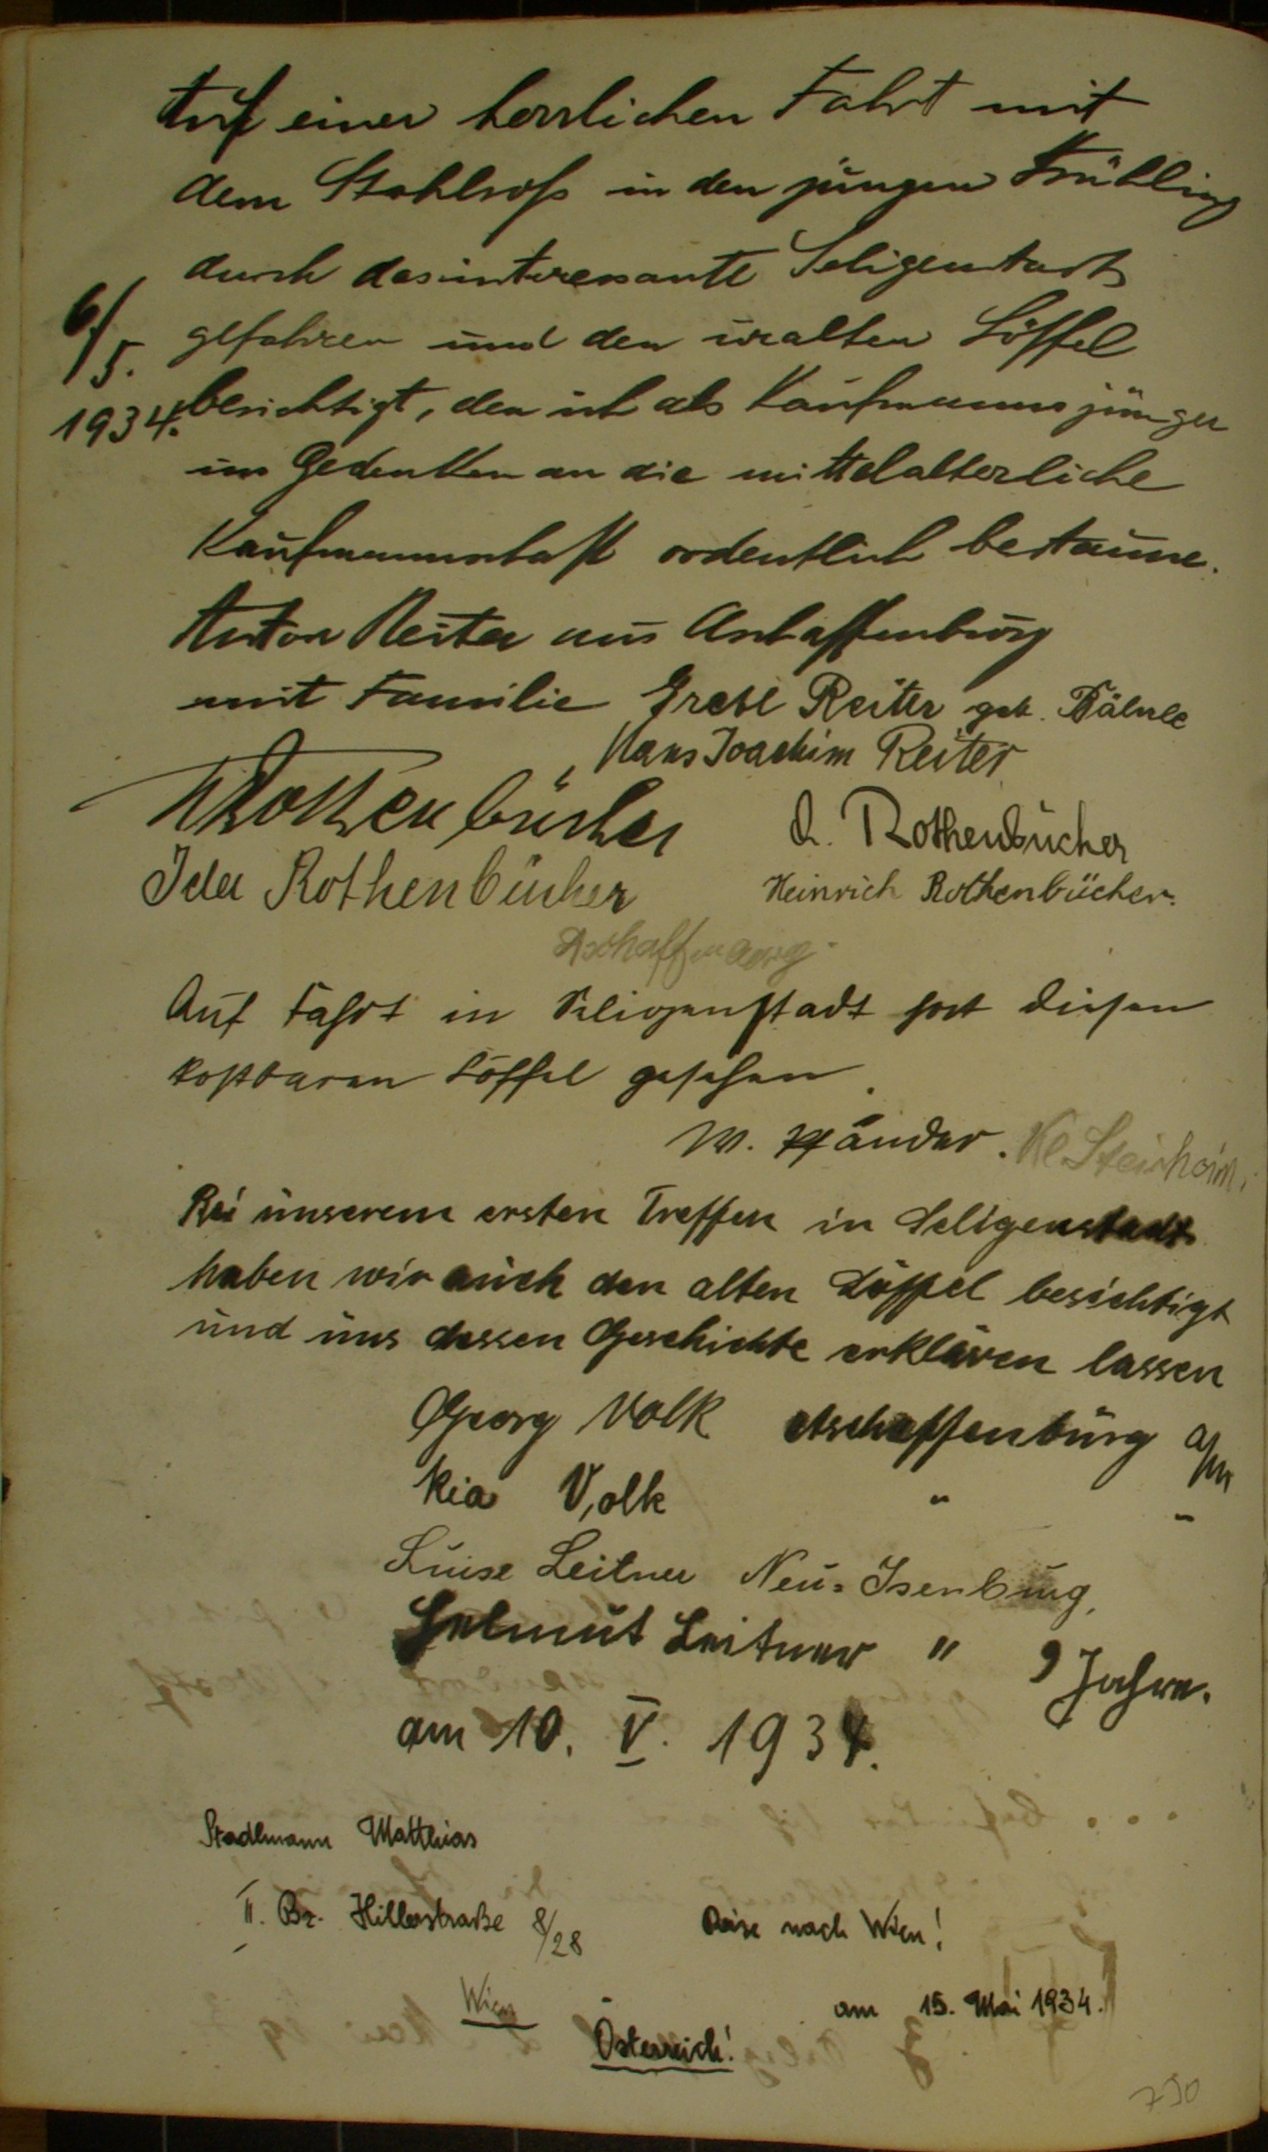 Auf einer herrlichen Fahrt mit
dem Stahlroß in den jungen Frühling
durch das interessante Seligenstadt
6/5. 1934. gefahren und den uralten Löffel
besichtigt, den ich als Kaufmannsjünger
im Gedenken an die mittelalterliche
Kaufmannschaft ordentlich bestaune.
Anton Reiter aus Aschaffenburg
mit Familie Gretl Reiter geb.
Hans Joachim Reiter
Rothenbücher
Rothenbücher
Ida Rothenbücher
Heinrich Rothenbücher.
Auf Fahrt in Seligenstadt hat diesen
kostbaren Löffel gesehen.
W. Pfänder. Kl. Steinheim.
Bei unserem ersten Treffen in Seligenstadt
haben wir auch den alten Löffel besichtigt
und uns dessen Geschichte erklären lassen
Georg Volk Aschaffenburg a/M
Ria Volk " "
Luise Leitner Neu-Isenburg,
Helmut Leitner " 9 Jahre.
am 10. V. 1934.
Stadlmann Matthias
II. Bz. Hillerstraße 8/28
Reise nach Wien!
Wien
am 15. Mai 1934.
Österreich!
730